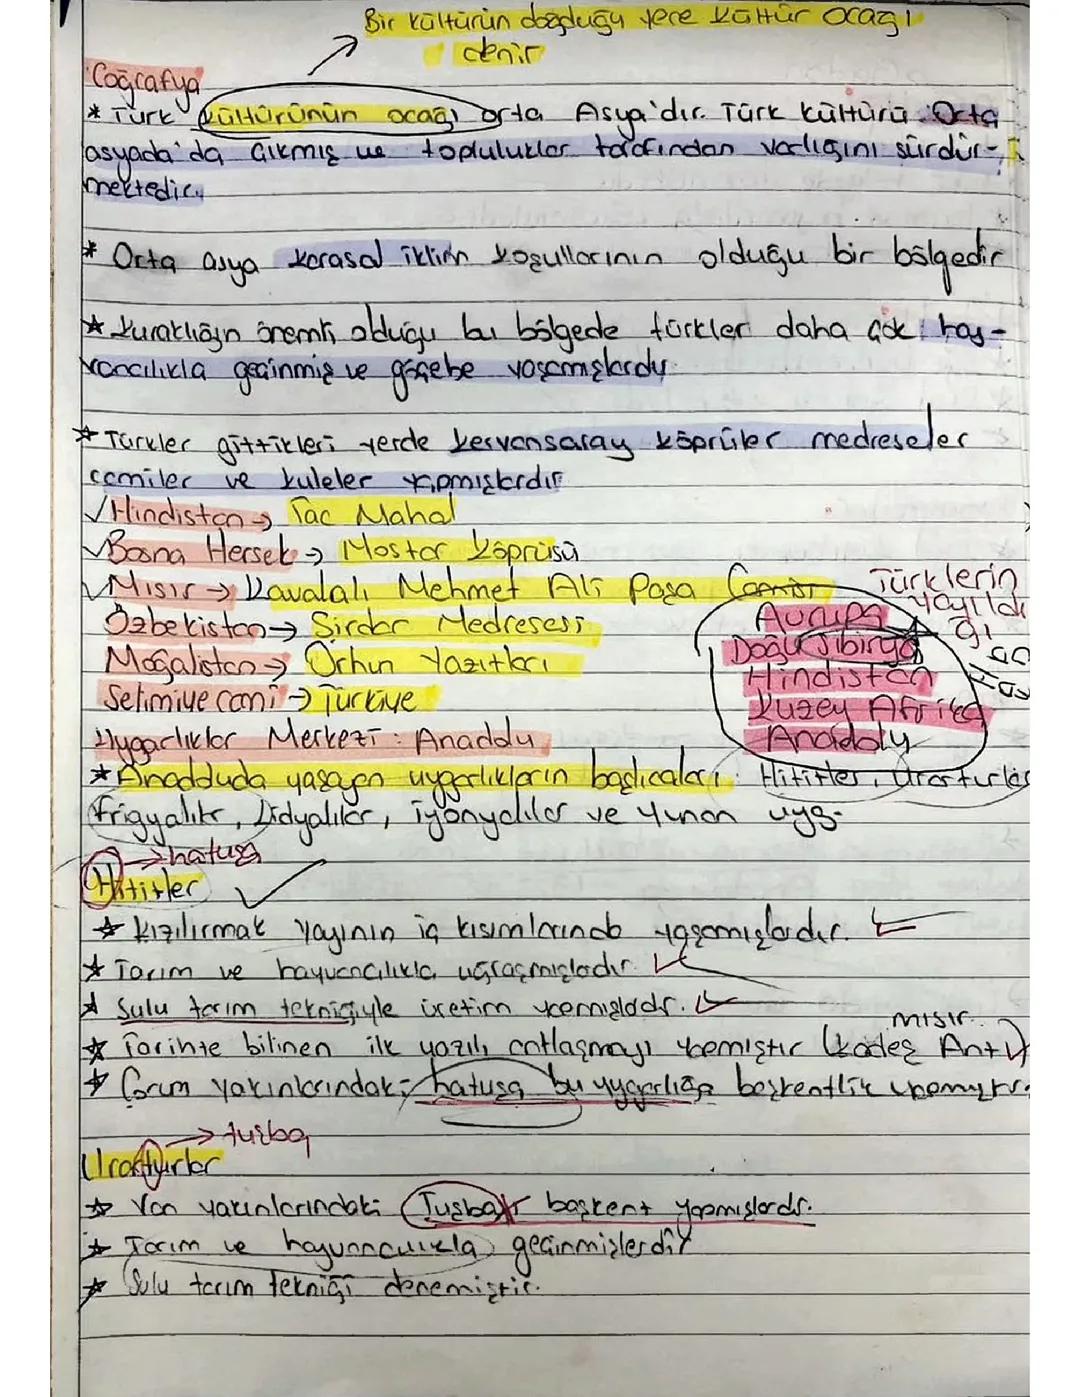 Bir kültürün doğduğu yere kültür ocağı
denir
Coğrafya
* Türk kültürünün ocağı orta Asya'dır. Türk kültürü Orta
asyada'da çıkmış ve topluluklar tarafından varlığını sürdür-
mektedir.
* Orta asya karasal iklim koşullarının olduğu bir bölgedir
* Kuraklığın önemli olduğu bu bölgede türkler daha çok hay-
vancılıkla geçinmiş ve göçebe yaşamışlardır
* Türkler gittikleri yerde kervansaray köprüler medreseler
camiler ve kuleler yapmışlardır
✓ Hindistan → Tac Mahal
✓ Bosna Hersek → Mostar köprüsü
✓ Mısır → Kavalalı Mehmet Ali Paşa Camisi
Özbekistan → Şirdar Medresesi
Moğalistan → Orhun Yazıtları
Selimiye cami → Türkiye
Türklerin
Yayıldı
ğı
Avrupa
Doğu Sibirya
Hindistan
Kuzey Afrika
Anadolu
Uygarlıklar Merkezi: Anadolu
* Anadoluda yaşayan uygarlıkların başlıcaları: Hititler, Urartular
frigyalılar, Lidyalılar, iyonyalılar ve Yunan uyg.
→ hatuşa
Hititler
* Kızılırmak yayının iç kısımlarında yaşamışlardır.
* Tarım ve hayvancılıkla uğraşmışladır.
* Sulu tarım tekniğiyle üretim yapmışladır.
mısır
* Tarihte bilinen ilk yazılı antlaşmayı yapmıştır (kadeş Ant)
* Çorum yakınlarındaki hatuşa bu uygarlığa başkentlik yapmıştır.
→ tuşba
Urartular
* Van yakınlarındaki Tuşbayı başkent yapmışlardır.
* Tarım ve hayvancılıkla geçinmişlerdir
* Sulu tarım tekniği denemiştir.